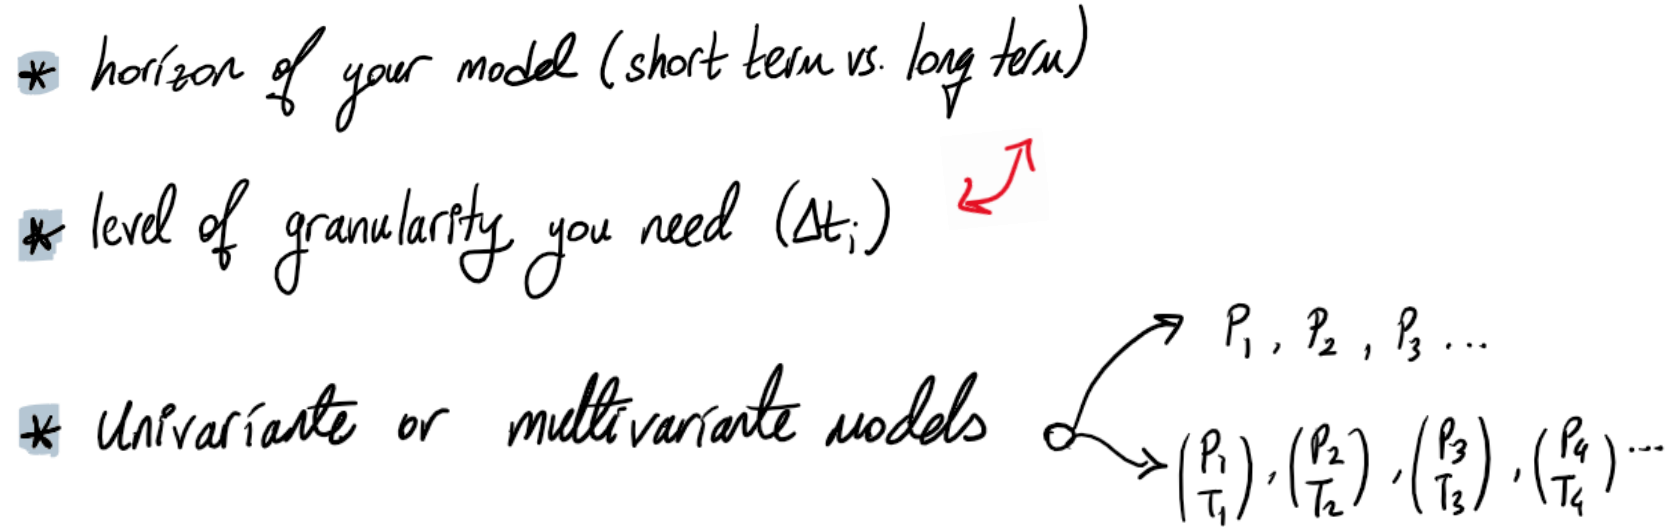 * horizon of your model (short term vs. long term)
* level of granularity you need (Δtᵢ)
* Univariante or multivariante models
P₁, P₂, P₃ ...
(P₁ T₁), (P₂ T₂), (P₃ T₃), (P₄ T₄) ...